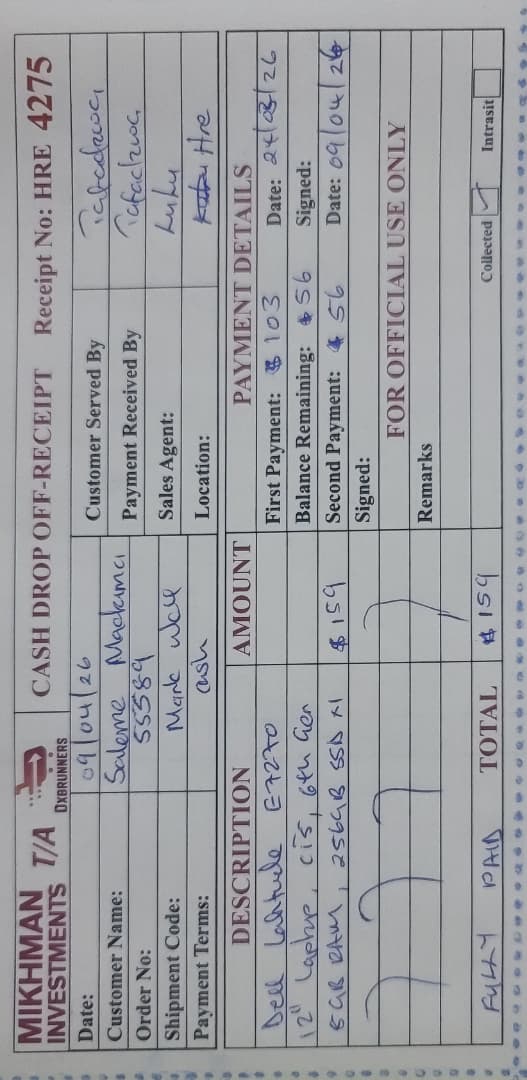 MIKHMAN INVESTMENTS T/A DXBRUNNERS
CASH DROP OFF-RECEIPT Receipt No: HRE 4275
Date: 09/04/26
Customer Name: Salome
Order No: 55389
Shipment Code: Mark Wall
Payment Terms: cash
Customer Served By Tafadzwa
Payment Received By Tafadzwa
Sales Agent: Lulu
Location: Hre
DESCRIPTION AMOUNT
Dell Latitude E7270
12" Laptop, ci5, 6th Gen
8GB RAM, 256GB SSD x1 $159
FULLY PAID TOTAL $159
PAYMENT DETAILS
First Payment: $103 Date: 24/03/26
Balance Remaining: $56 Signed:
Second Payment: $56 Date: 09/04/26
Signed:
FOR OFFICIAL USE ONLY
Remarks
Collected Intrasit